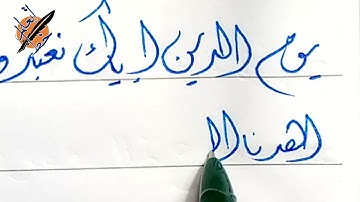 يوم الدين إياك نعبد و
اهدنا ال